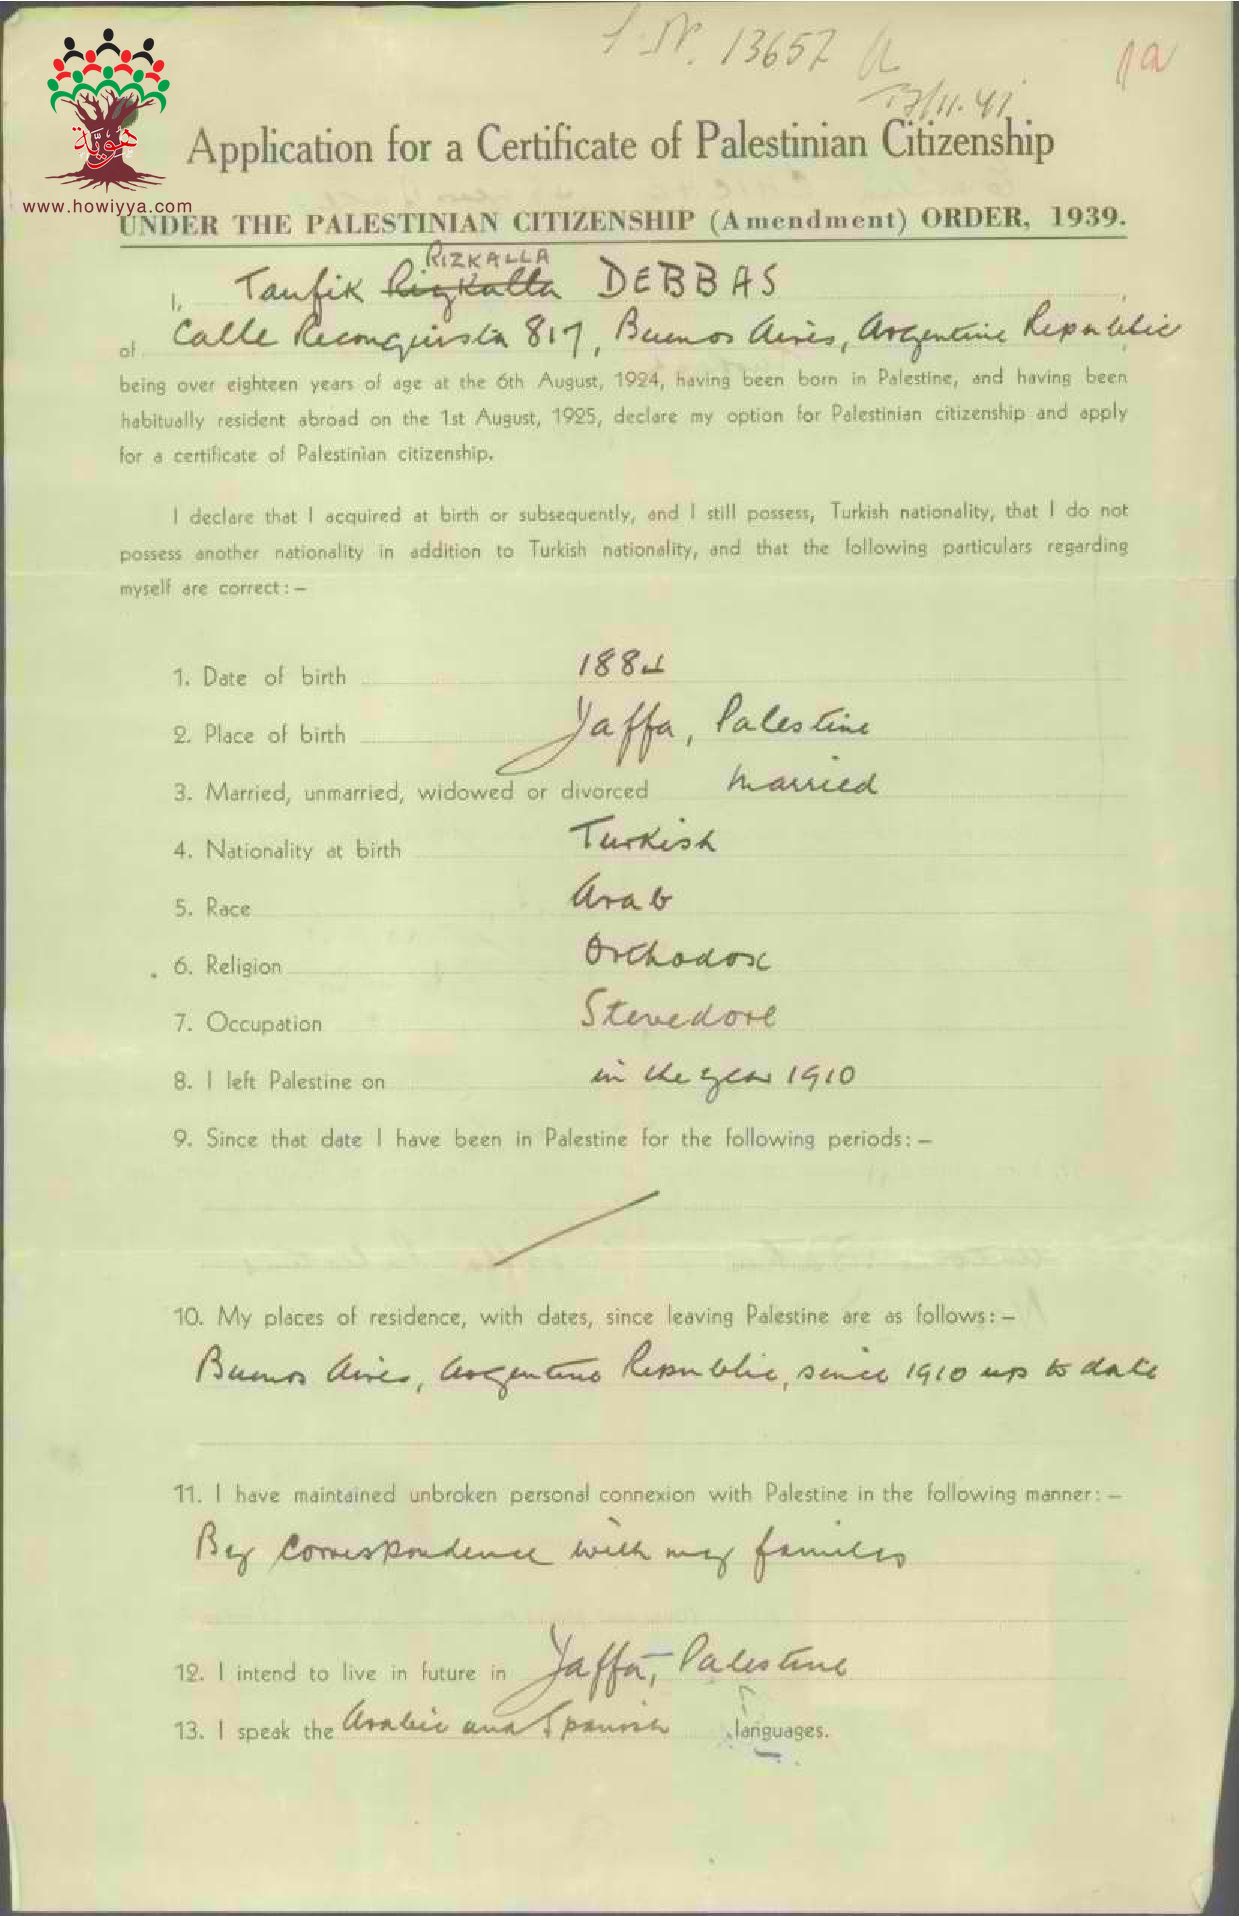 S.N. 13657 A
17/11.41
1a
هُويّة
www.howiyya.com
Application for a Certificate of Palestinian Citizenship
UNDER THE PALESTINIAN CITIZENSHIP (Amendment) ORDER, 1939.
RIZKALLA
I, Taufik Rizkalla DEBBAS
of Calle Reconquista 817, Buenos Aires, Argentine Republic
being over eighteen years of age at the 6th August, 1924, having been born in Palestine, and having been
habitually resident abroad on the 1st August, 1925, declare my option for Palestinian citizenship and apply
for a certificate of Palestinian citizenship.
I declare that I acquired at birth or subsequently, and I still possess, Turkish nationality, that I do not
possess another nationality in addition to Turkish nationality, and that the following particulars regarding
myself are correct: –
1. Date of birth 1884
2. Place of birth Yaffa, Palestine
3. Married, unmarried, widowed or divorced Married
4. Nationality at birth Turkish
5. Race Arab
6. Religion Orthodox
7. Occupation Stevedore
8. I left Palestine on in the year 1910
9. Since that date I have been in Palestine for the following periods: –
10. My places of residence, with dates, since leaving Palestine are as follows: –
Buenos Aires, Argentine Republic, since 1910 up to date
11. I have maintained unbroken personal connexion with Palestine in the following manner: –
By correspondence with my families
12. I intend to live in future in Yaffa, Palestine
13. I speak the Arabic and Spanish languages.